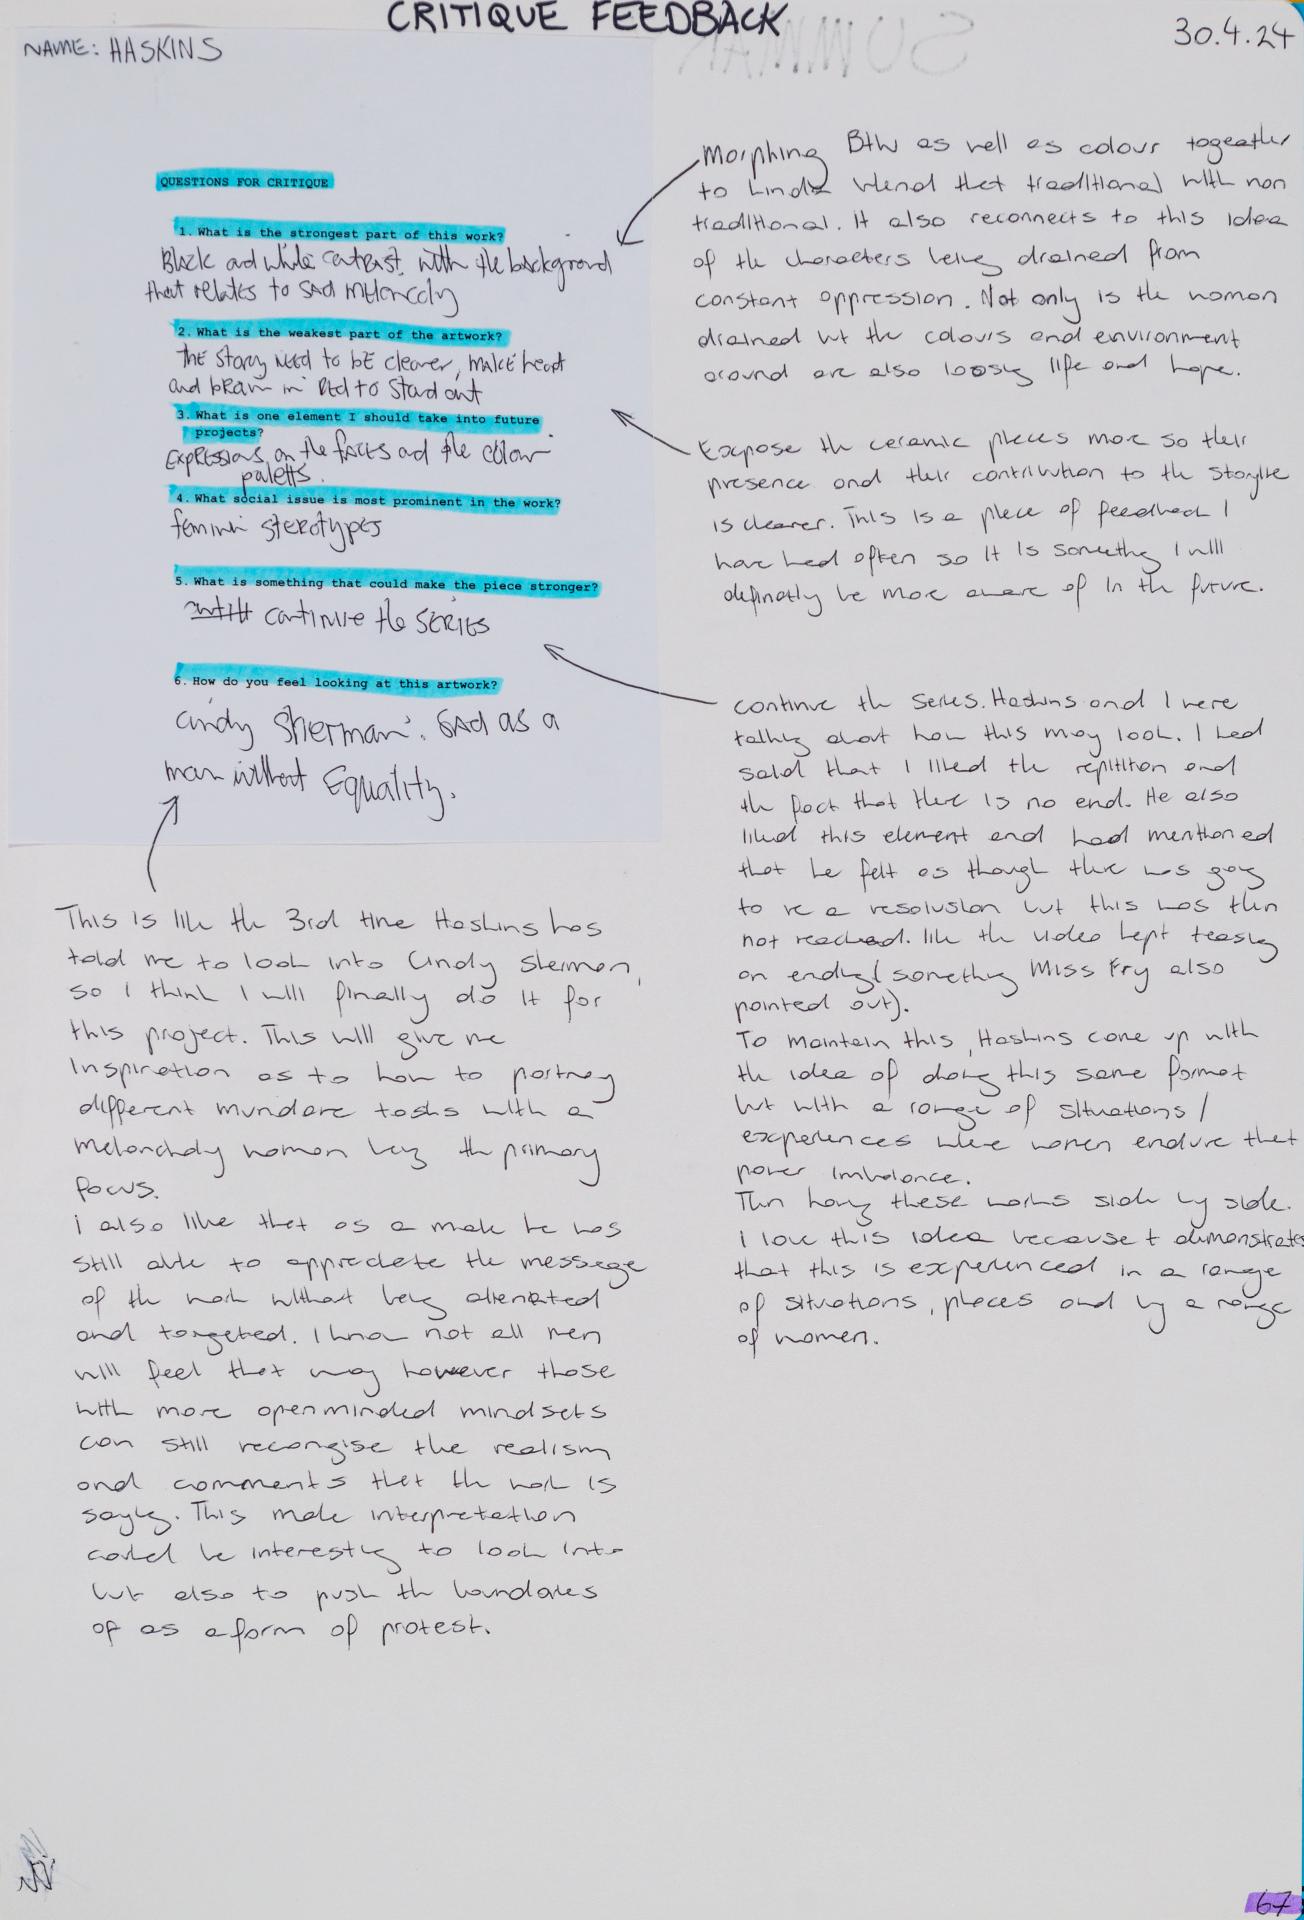 CRITIQUE FEEDBACK
30.4.24
NAME: HASKINS
QUESTIONS FOR CRITIQUE
1. What is the strongest part of this work?
Black and white contrast with the background
that relates to SAD melencdy
2. What is the weakest part of the artwork?
The story need to be clearer, make heart
and brain in Red to stand out
3. What is one element I should take into future
projects?
Expressions on the faces and the colour
paletts.
4. What social issue is most prominent in the work?
feminin sterotypes
5. What is something that could make the piece stronger?
continue the SERIES
6. How do you feel looking at this artwork?
Cindy Sherman. SAD as a
man without Equality.
This is like the 3rd time Haskins has
told me to look into Cindy Sherman,
so I think I will finally do it for
this project. This will give me
inspiration as to how to portray
different mundane tasks with a
melancholy woman being the primary
focus.
i also like that as a male he was
still able to appreciate the message
of the work without being alienated
and targeted. I know not all men
will feel that way however those
with more openminded mindsets
can still recongise the realism
and comments that the work is
saying. This male interpretation
could be interesting to look into
but also to push the boundaries
of as a form of protest.
Morphing B+W as well as colour togeather
to kinda blend that traditional with non
traditional. It also reconnects to this idea
of the characters being drained from
constant oppression. Not only is the woman
drained but the colours and environment
around are also loosing life and hope.
Expose the ceramic pieces more so their
presence and their contribution to the storyline
is clearer. This is a piece of feedback I
have had often so it is something I will
definetly be more aware of in the future.
continue the series. Haskins and I were
talking about how this may look. I had
said that I liked the repitition and
the fact that there is no end. He also
liked this element and had mentioned
that he felt as though there was going
to be a resolusion but this was then
not reached. like the video kept teasing
an ending (something Miss Fry also
pointed out).
To maintain this, Haskins came up with
the idea of doing this same format
but with a range of situations /
experiences where women endure that
power imbalance.
Then hang these works side by side.
i love this idea because t demonstrates
that this is experienced in a range
of situations, places and by a range
of women.
67